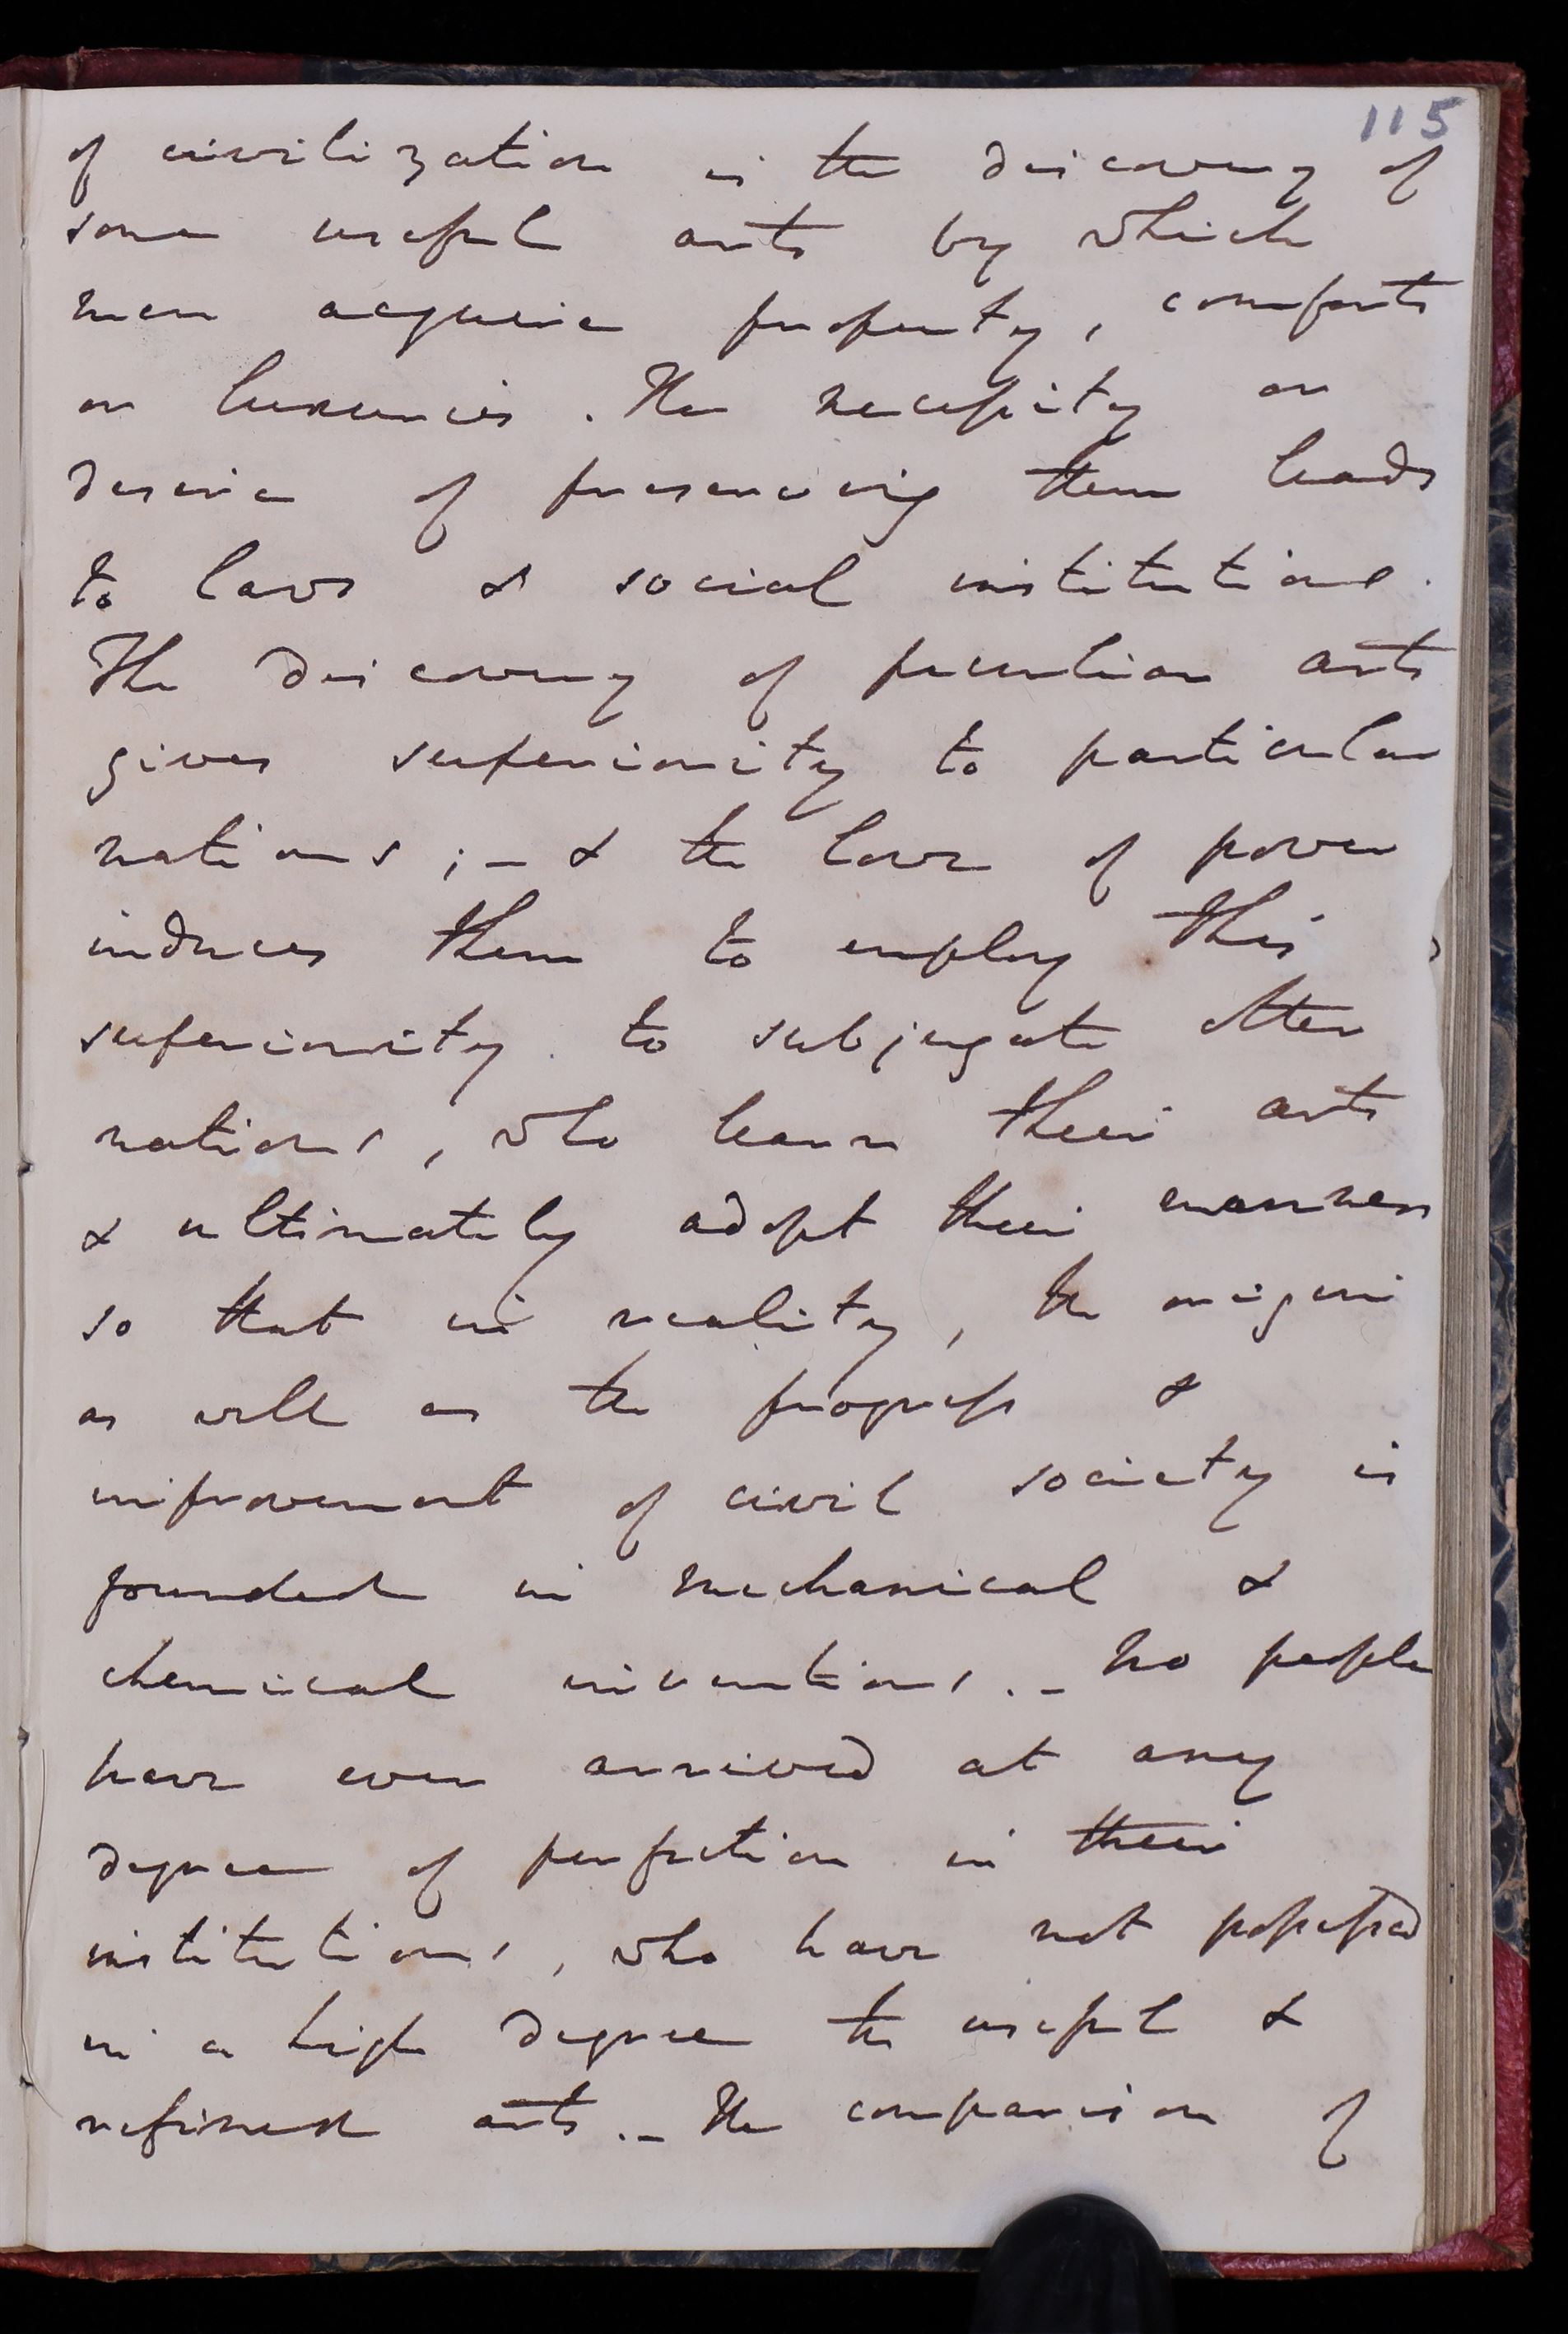 115
of civilization is the discovery of
some useful arts by which
men acquire property, comforts
or luxuries. The necessity or
desire of preserving them leads
to laws & social institutions.
The discovery of peculiar arts
gives superiority to particular
nations ;– & the love of power
induces them to employ this
superiority to subjugate other
nations, who learn their arts
& ultimately adopt their manners
so that in reality, the origin
as well as the progress &
improvement of civil society is
founded in mechanical &
chemical inventions. – No people
have ever arrived at any
degree of perfection in their
institutions, who have not possessed
in a high degree the useful &
refined arts. – The comparison of